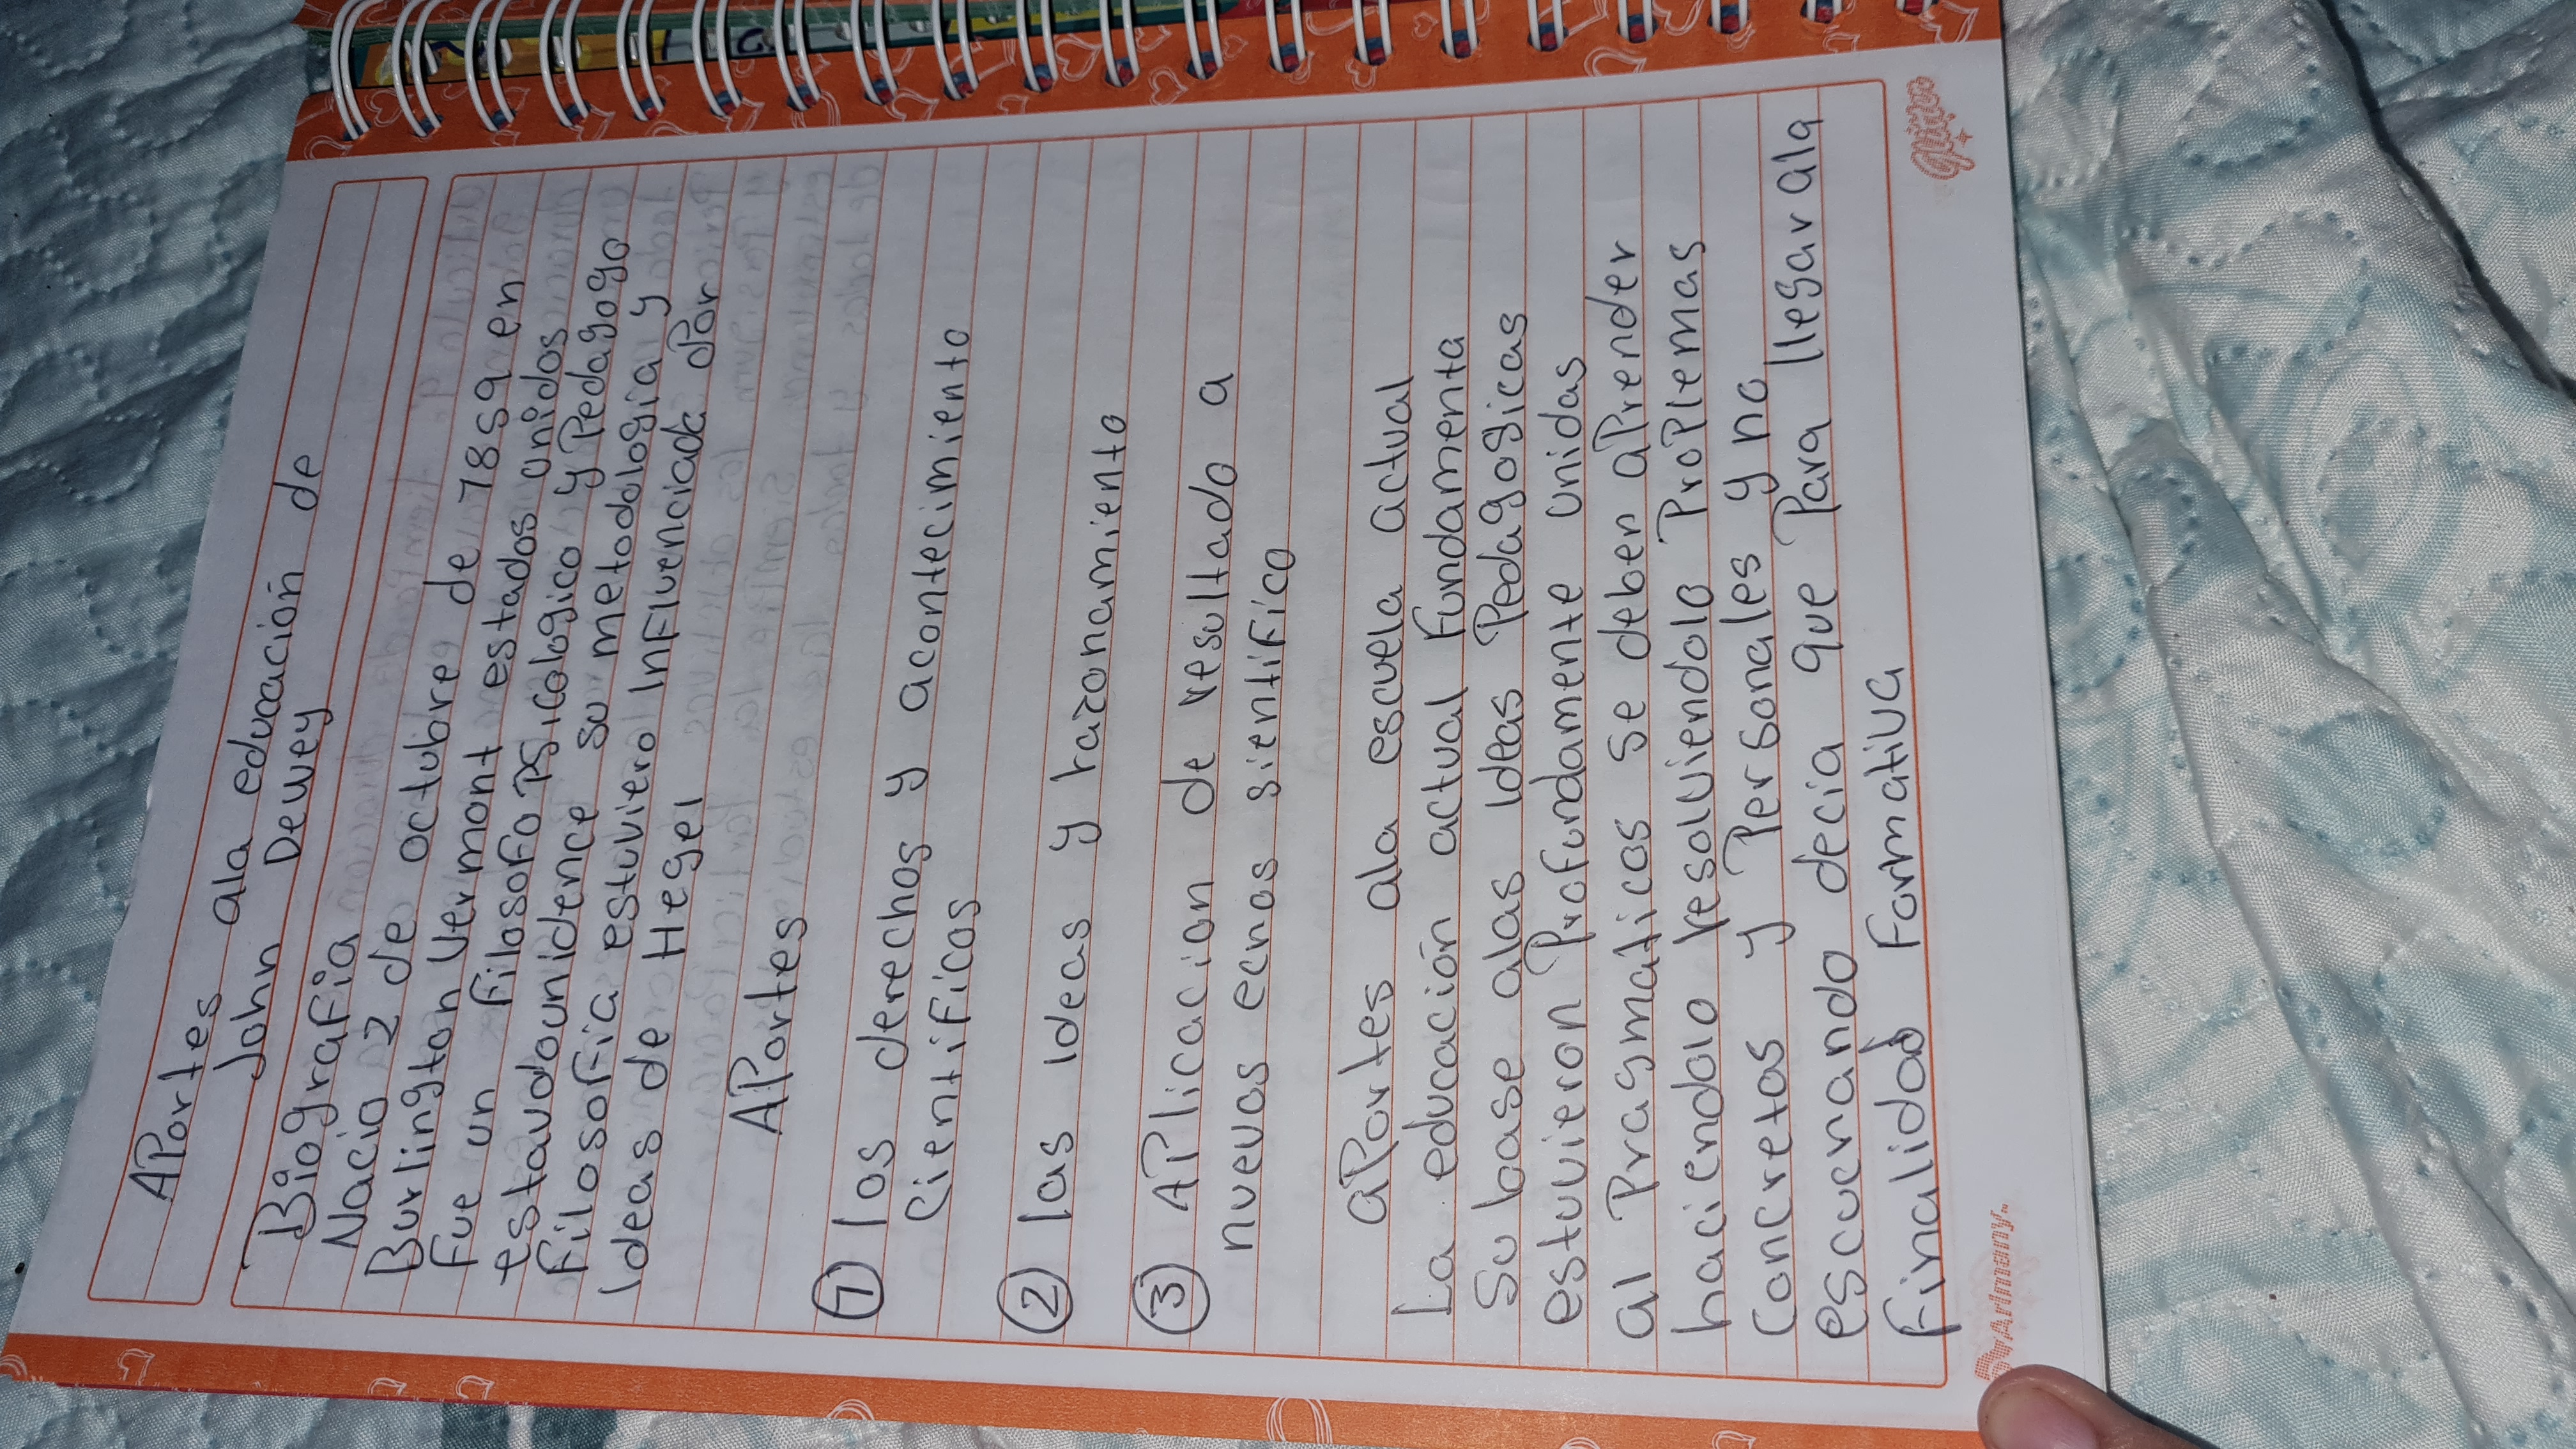 APortes ala educación de
John Dewey
Biografía
Nacio 2 de octubre de 1859 en
Burlington Vermont estados unidos
Fue un filosofo Psicologico y Pedagogo
estavdounidence su metodologia y
filosofia estuviero influenciada Por
Ideas de Hegel
APortes
① los derechos y acontecimiento
Cientificos
② las Ideas y razonamiento
③ APlicacion de resultado a
nuevos ecnos sientifico
aPortes ala escuela actual
La educación actual Fundamenta
Su base alas Ideas Pedagogicas
estuvieron Profundamente unidas
al Pragmaticos se deben aPrender
haciendolo resolviendolo ProPlemas
Concretas y Personales y no
escucnando decia que Para llegar ala
Finalidad Formativa
ByArimany